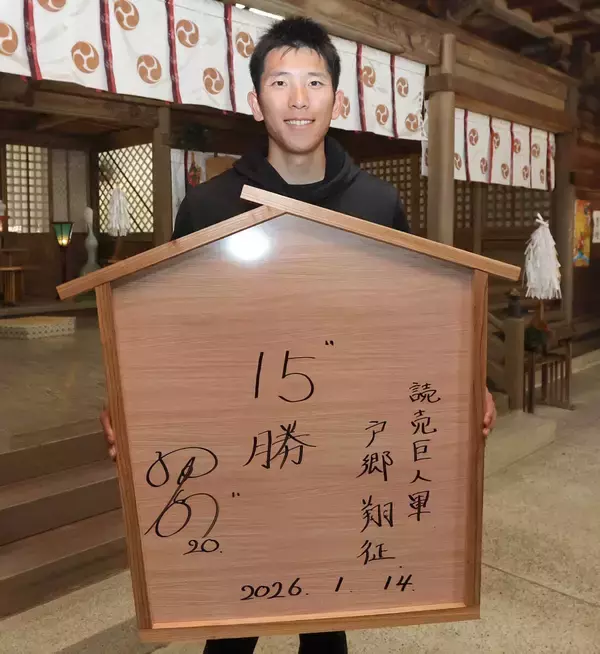 読売巨人軍
戸郷 翔征
15"
勝
20.
2026. 1. 14.